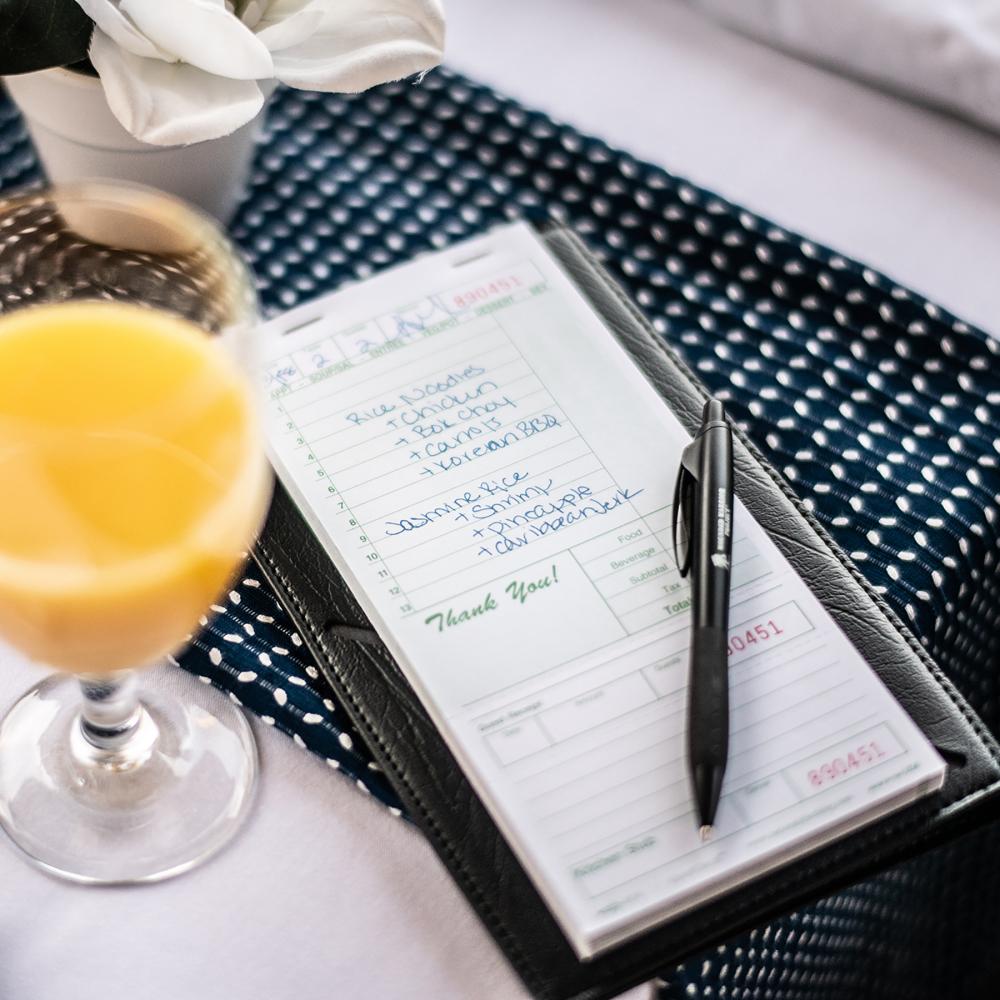 2 2 890451
APPT - SOUP/SAL - ENTREE - VEG/POT - DESSERT - BEV
1
2 Rice Noodles
3 + Chicken
4 + Bok Choy
5 + Carrots
6 + Korean BBQ
7
8 Jasmine Rice
9 + Shrimp
10 + pineapple
11 + caribbean jerk
12
13
Food
Beverage
Subtotal
Tax
Total
Thank You!
Guest Receipt
Date Amount Guests 90451
890451